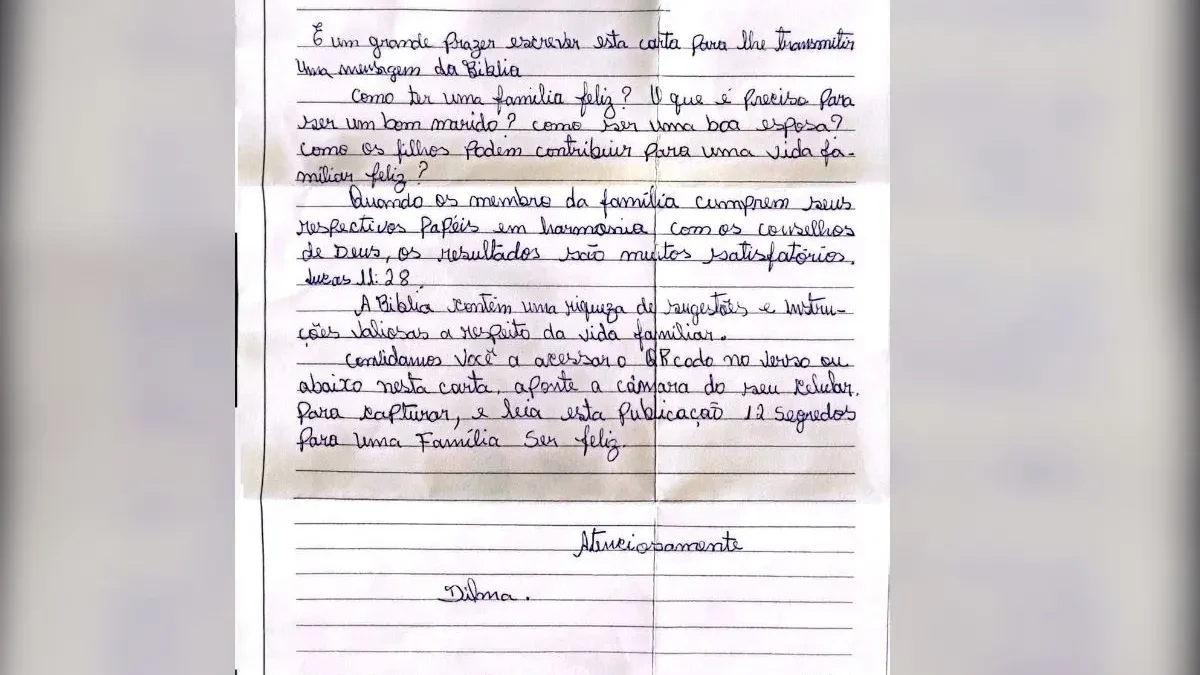 É um grande prazer escrever esta carta para lhe transmitir
uma mensagem da Biblia
como ter uma familia feliz? O que é preciso para
ser um bom marido? como ser uma boa esposa?
como os filhos podem contribuir para uma vida fa-
miliar feliz?
Quando os membro da família cumprem seus
respectivos papéis em harmonia com os conselhos
de Deus, os resultados são muitos satisfatórios.
Lucas 11:28.
A Biblia contém uma riqueza de sugestões e instru-
ções valiosas a respeito da vida familiar.
Convidamos você a acessar o QR codo no verso ou
abaixo nesta carta, aponte a câmara do seu celular.
para capturar, e leia esta publicação 12 segredos
para uma Família Ser feliz.
Atenciosamente
Dilma.